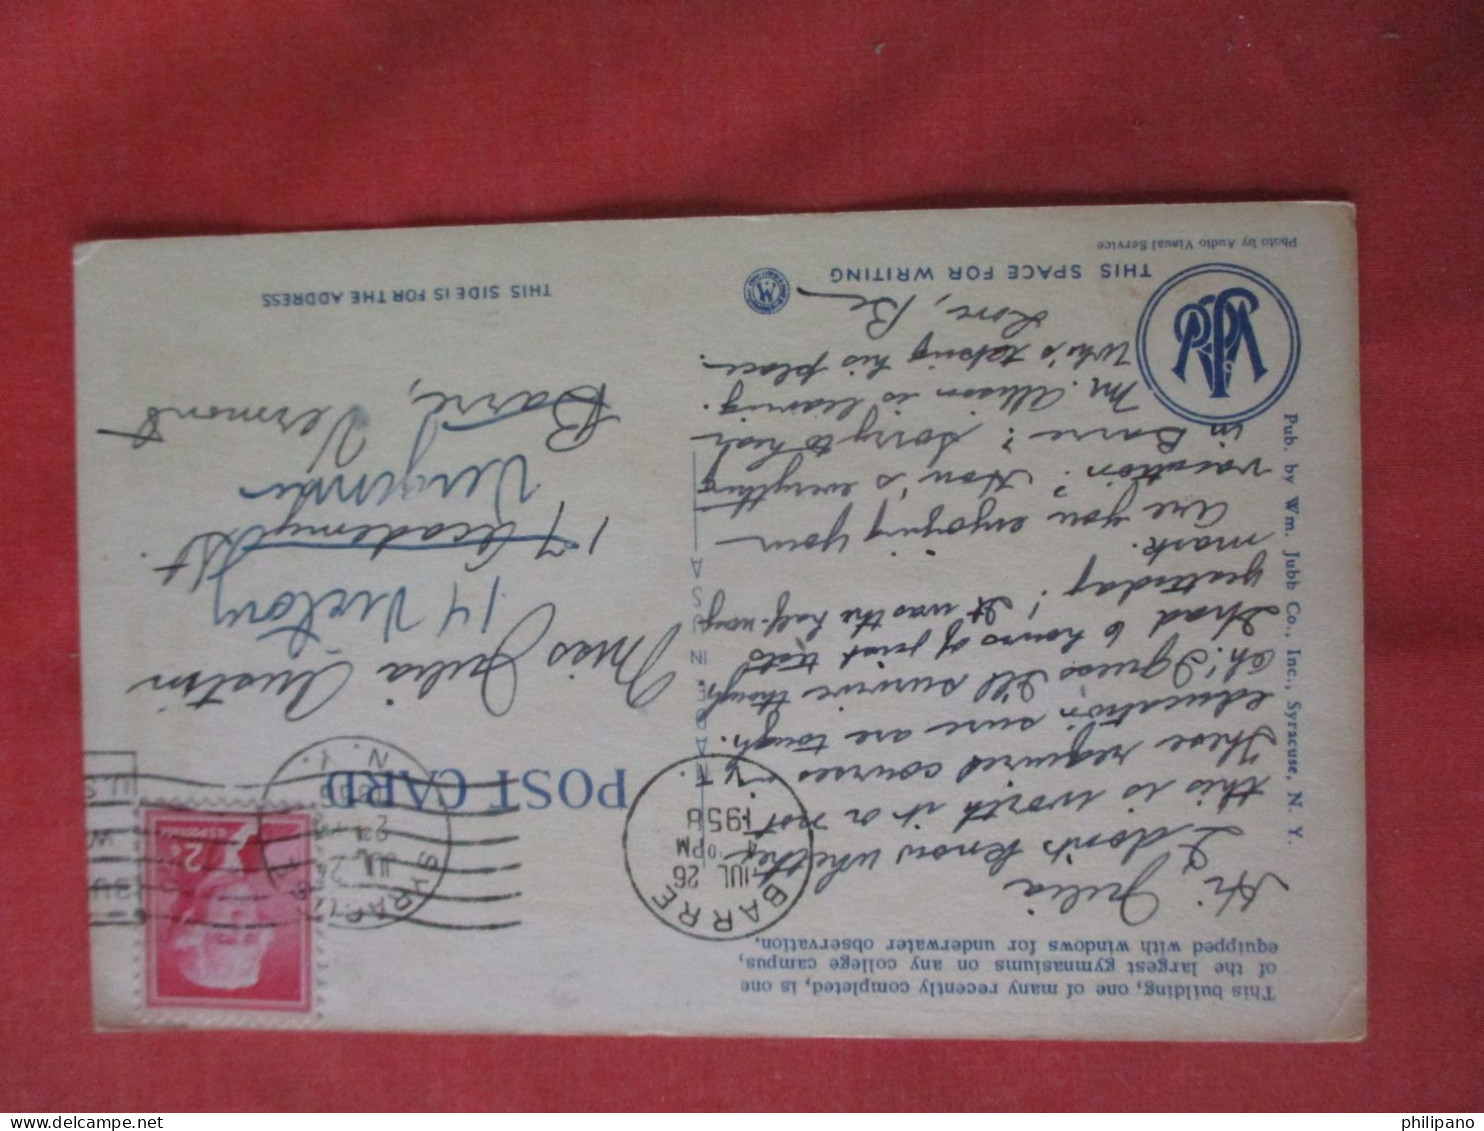 This building, one of many recently completed, is one
of the largest gymnasiums on any college campus,
equipped with windows for underwater observation.
Hi Julia
I don't know whether
this is worth it or not.
These required courses in
education sure are tough.
Oh! I guess I'll survive though.
I had 6 hours of
tests
yesterday! It was the half-way
mark.
Are you enjoying your
vacation? How's everything
in Barre? Sorry to hear
Mr. Allison is leaving.
Who's taking his place.
Love, Be
THIS SPACE FOR WRITING
Photo by Audio Visual Service
Pub. by Wm. Jubb Co., Inc., Syracuse, N. Y.
MADE IN U S A
POST CARD
BARRE
JUL 26
PM
1958
VT.
SYRACUSE
JUL 24
PM
N.Y.
2¢
U.S. POSTAGE
Miss Julia Austin
14 Victory
17 Academy St.
Vergennes
Barre, Vermont
THIS SIDE IS FOR THE ADDRESS
philipano